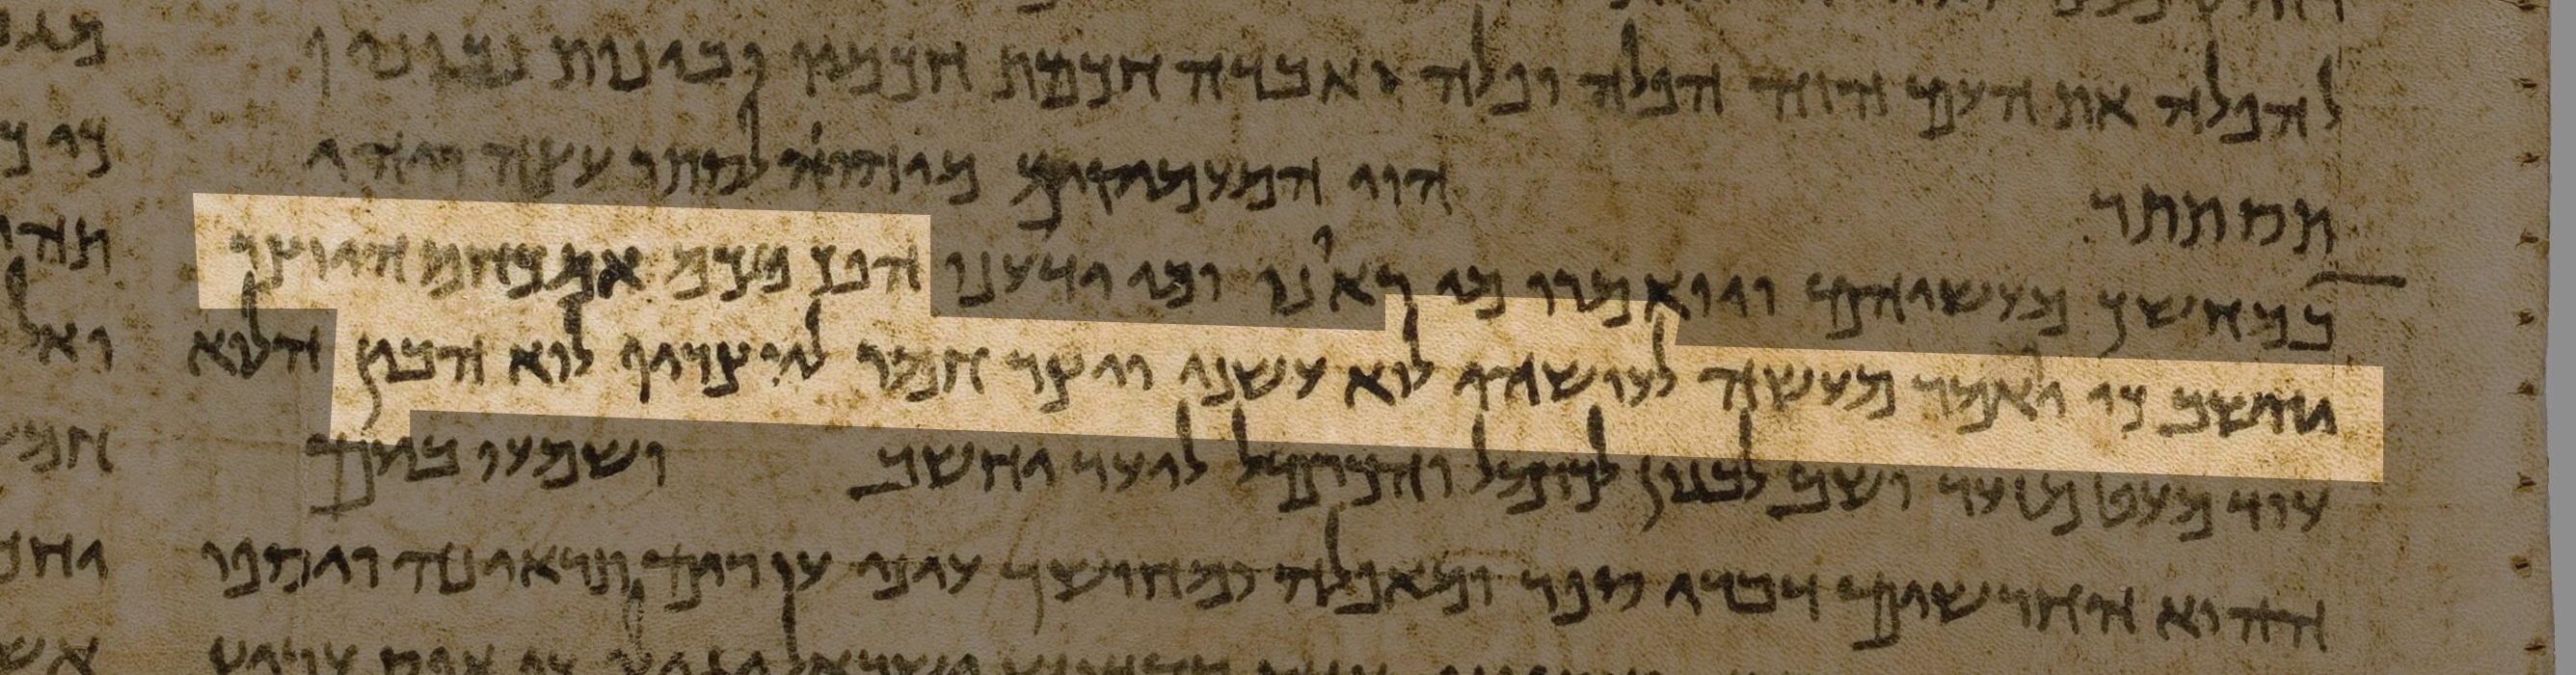 להפלה את העם הזה הפלה ופלה ואבדה חכמת חכמיו ובינות נבוניו
תסתתר הוי המעמיקים מיהוה לסתר עצה והיה
במחשך מעשיהם ויואמרו מי ראינו ומי ידענו הפך מכם אם כחמר היוצר
יחשב כי יאמר מעשה לעושהו לוא עשני ויצר חמר ליוצריו לוא הבין הלוא
עוד מעט מזער ושב לבנון לכרמל והכרמל ליער יחשב ושמעו ביום
ההוא החרשים דברי ספר ומאפלה ומחושך עיני עורים תראינה ויספו